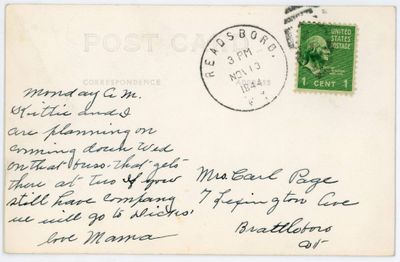 POST CARD
CORRESPONDENCE
ADDRESS
READSBORO,
3 PM
NOV 13
1944
VT.
UNITED STATES POSTAGE
1 CENT 1
Monday A.M.
Kittie and I
are planning on
coming down Wed
on that buss that gets
there at two If your
still have company
we will go to Dicks'
love Mama
Mrs. Carl Page
7 Lexington Ave
Brattleboro
Vt